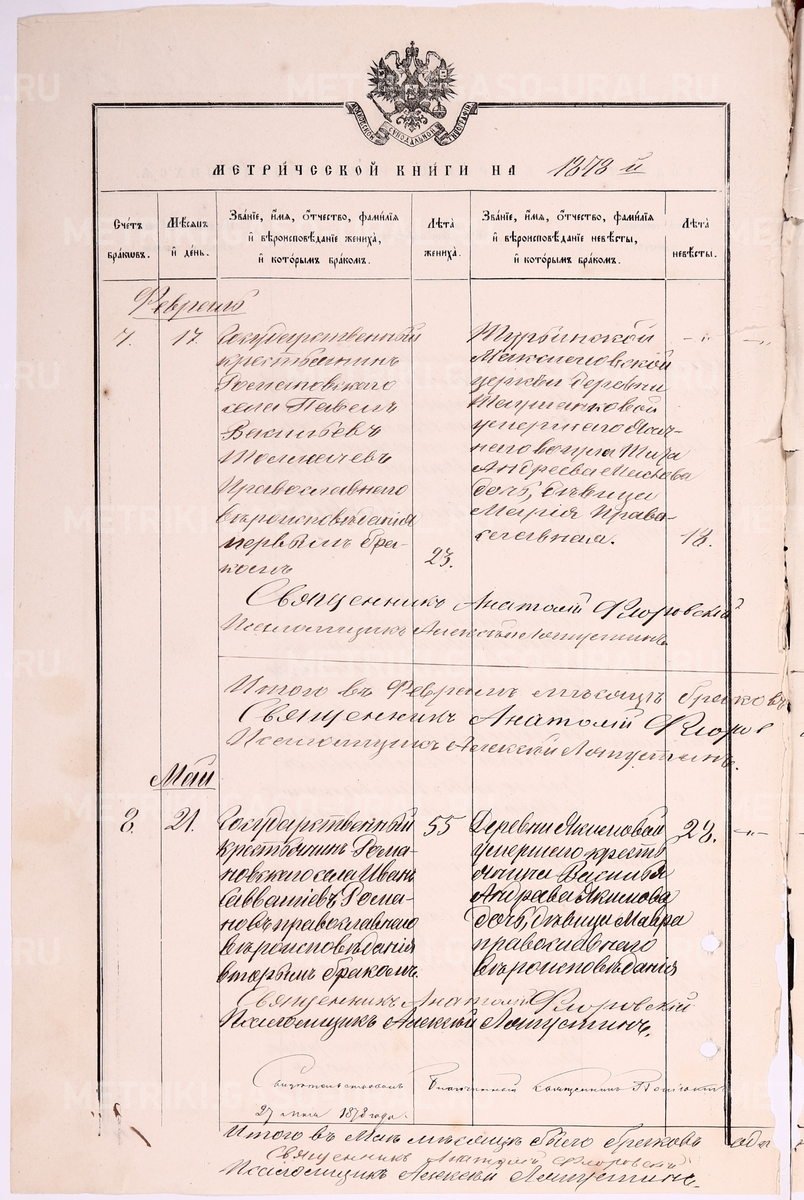 МОСКОВСКОЙ СѴНОДАЛЬНОЙ ТИПОГРАФІИ
МЕТРИ́ЧЕСКОЙ КНИ́ГИ НА 1878 й
Сче́тъ бра́кѡвъ.
Мѣ́сѧцъ и҆ де́нь.
Зва́нїе, и҆́мѧ, ѻ҆́тчество, фами́лїѧ и҆ вѣроисповѣ́данїе жениха̀, и҆ кото́рымъ бра́комъ.
Лѣ́та жениха̀.
Зва́нїе, и҆́мѧ, ѻ҆́тчество, фами́лїѧ и҆ вѣроисповѣ́данїе невѣ́сты, и҆ кото́рымъ бра́комъ.
Лѣ́та невѣ́сты.
Февраль
7.
17.
Государственный
крестьянинъ
Романовскаго
села Павелъ
Васильевъ
Толмачевъ
Православнаго
вѣроисповѣданія
первымъ бра-
комъ
23.
Турьинской
церкви деревни
умершаго
Андреева
дочь, дѣвица
Марія Право-
славная.
18.
Священникъ Анатолій Флоровскій
Псаломщикъ Алексѣй Ляпустинъ
Итого въ Февралѣ мѣсяцѣ браковъ
Священникъ Анатолій Флоров
Псаломщикъ Алексѣй Ляпустинъ.
Май
8.
21.
Государственный
крестьянинъ Рома-
новскаго села Иванъ
Савватіевъ Рома-
новъ православнаго
вѣроисповѣданія
вторымъ бракомъ.
55
Деревни Якимовой
умершаго кресть
янина Василья
Андрева Якимова
дочь, дѣвица Мавра
православнаго
вѣроисповѣданія
28.
Священникъ Анатолій Флоровскій
Псаломщикъ Алексѣй Ляпустинъ.
Благочинный Священникъ
27 1878 года.
Итого въ Маѣ мѣсяцѣ было браковъ оди
Священникъ Анатолій Флоровскій
Псаломщикъ Алексѣй Ляпустинъ.